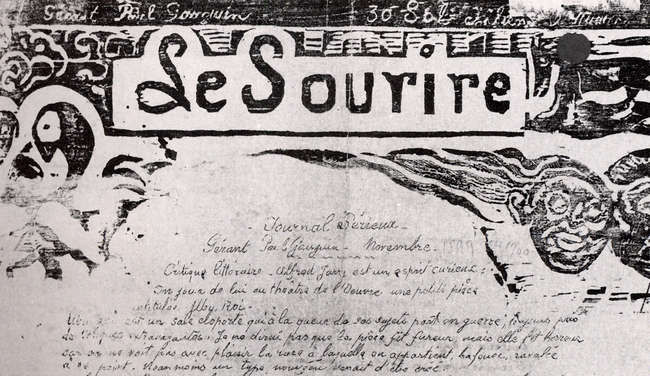 Gérant Paul Gauguin
Le Sourire
Journal Sérieux
Gérant Paul Gauguin - Novembre. 1899
Critique littéraire - Alfred Jarry est un esprit curieux:
On joua de lui au théâtre de l'Oeuvre une petite pièce
intitulée Uby Roi -
est un sale cloporte qui à la queue de ses sujets part en guerre, toujours
extravagantes. Je ne dirai pas que la pièce fit fureur mais elle fit horreur
car on ne voit pas avec plaisir la race à laquelle on appartient bafouée, ravalée
à ce point. Néanmoins un type nouveau venait d'être créé.